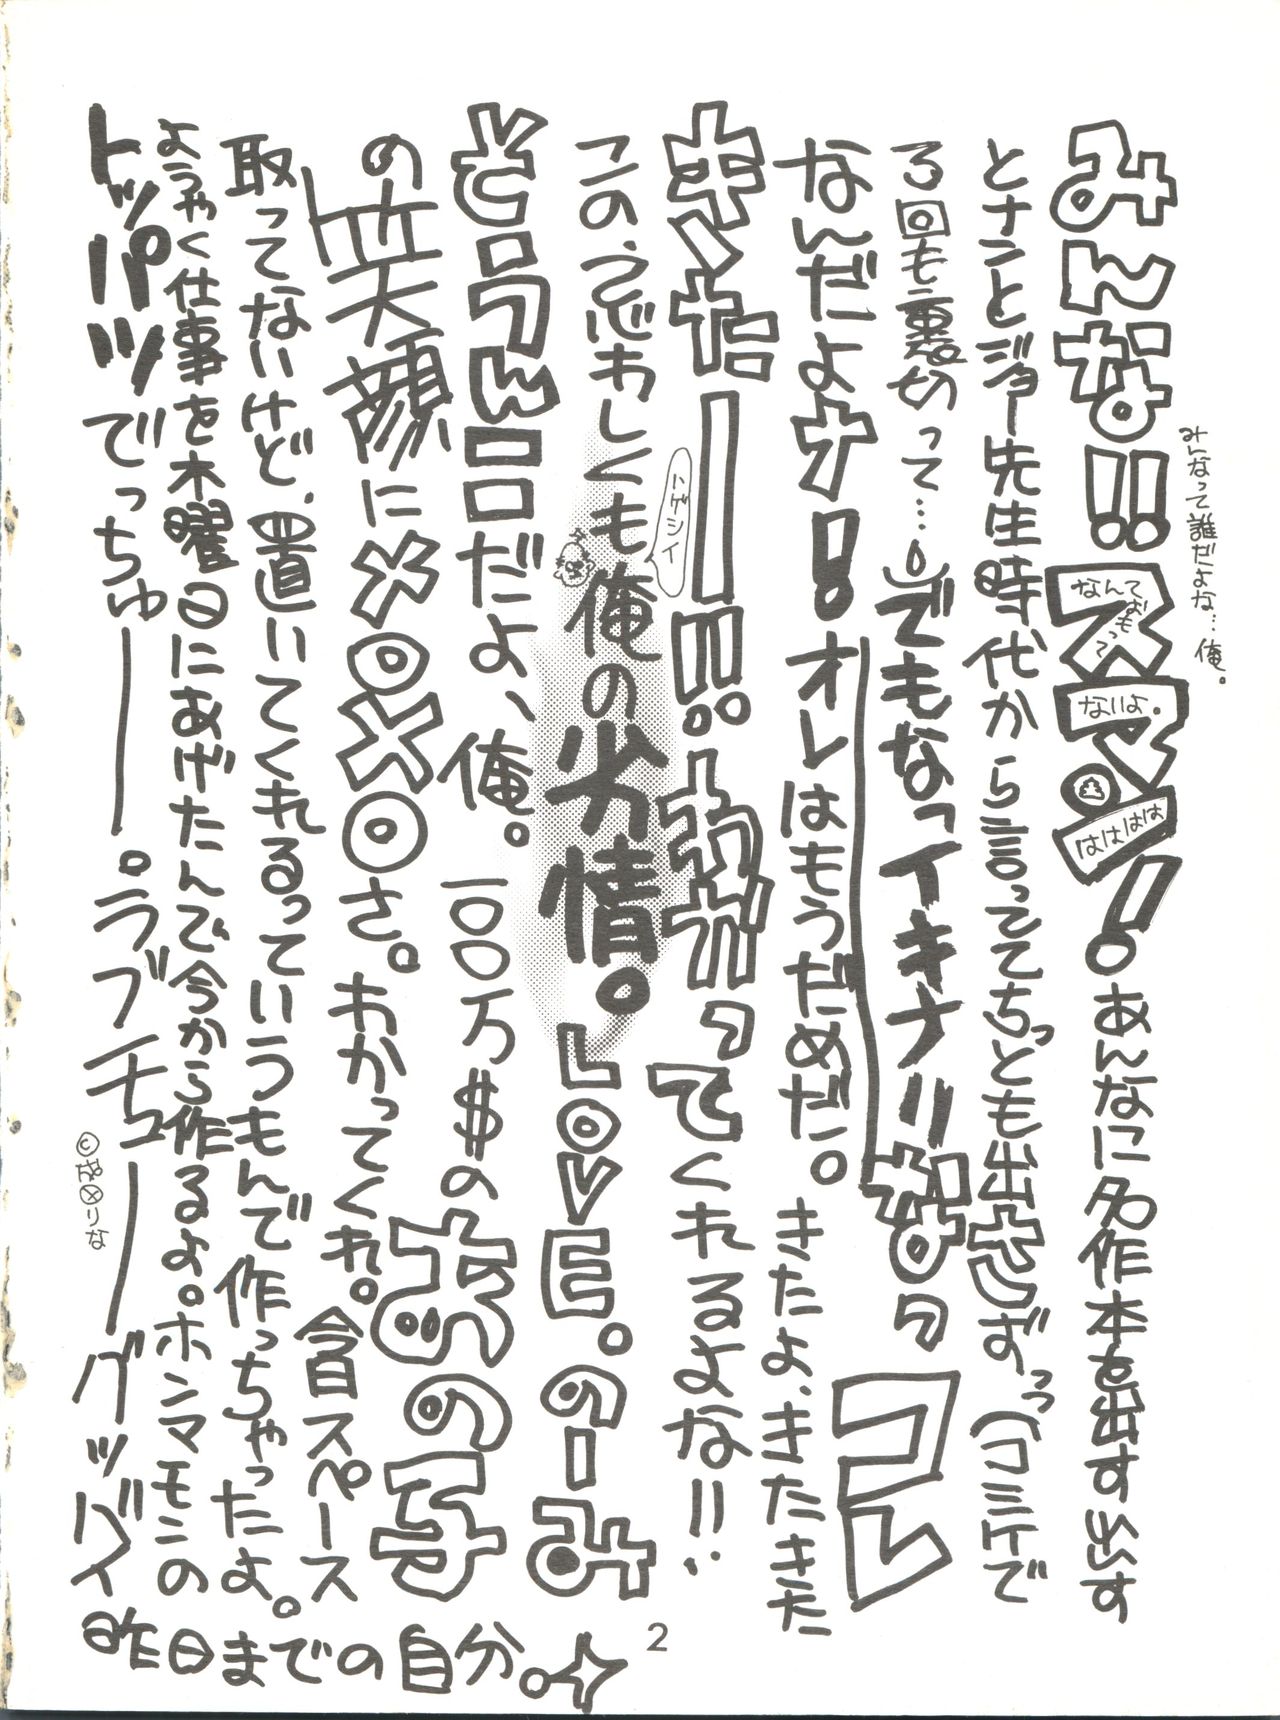 みんなって誰だよな…俺。
みんな!!スマン!あんなに名作本を出す出す
なんておもって
ないよ。
はははは
とナントとジョー先生時代から言っててちっとも出さずっっ(コミケで
3回も裏切って…。)でもなっイキナリなっコレ
なんだよナ!オレはもうだめだ。きたよ、きたきた
きたーー!!わかってくれるよな!!
ハゲシイ
この、うぶわしくも俺の劣情。LOVE。のーみ
そとろんロロだよ、俺。一〇〇万$のあの子
の笑顔に×○×○さ。わかってくれ。今日スペース
取ってないけど、置いてくれるっていうもんで作っちゃったよ。
ようやく仕事を木曜日にあげたんで今から作るよ。ホンマモンの
トッパツでっちゅー。ラブチューグッバイ
昨日までの自分。
©
りな
2